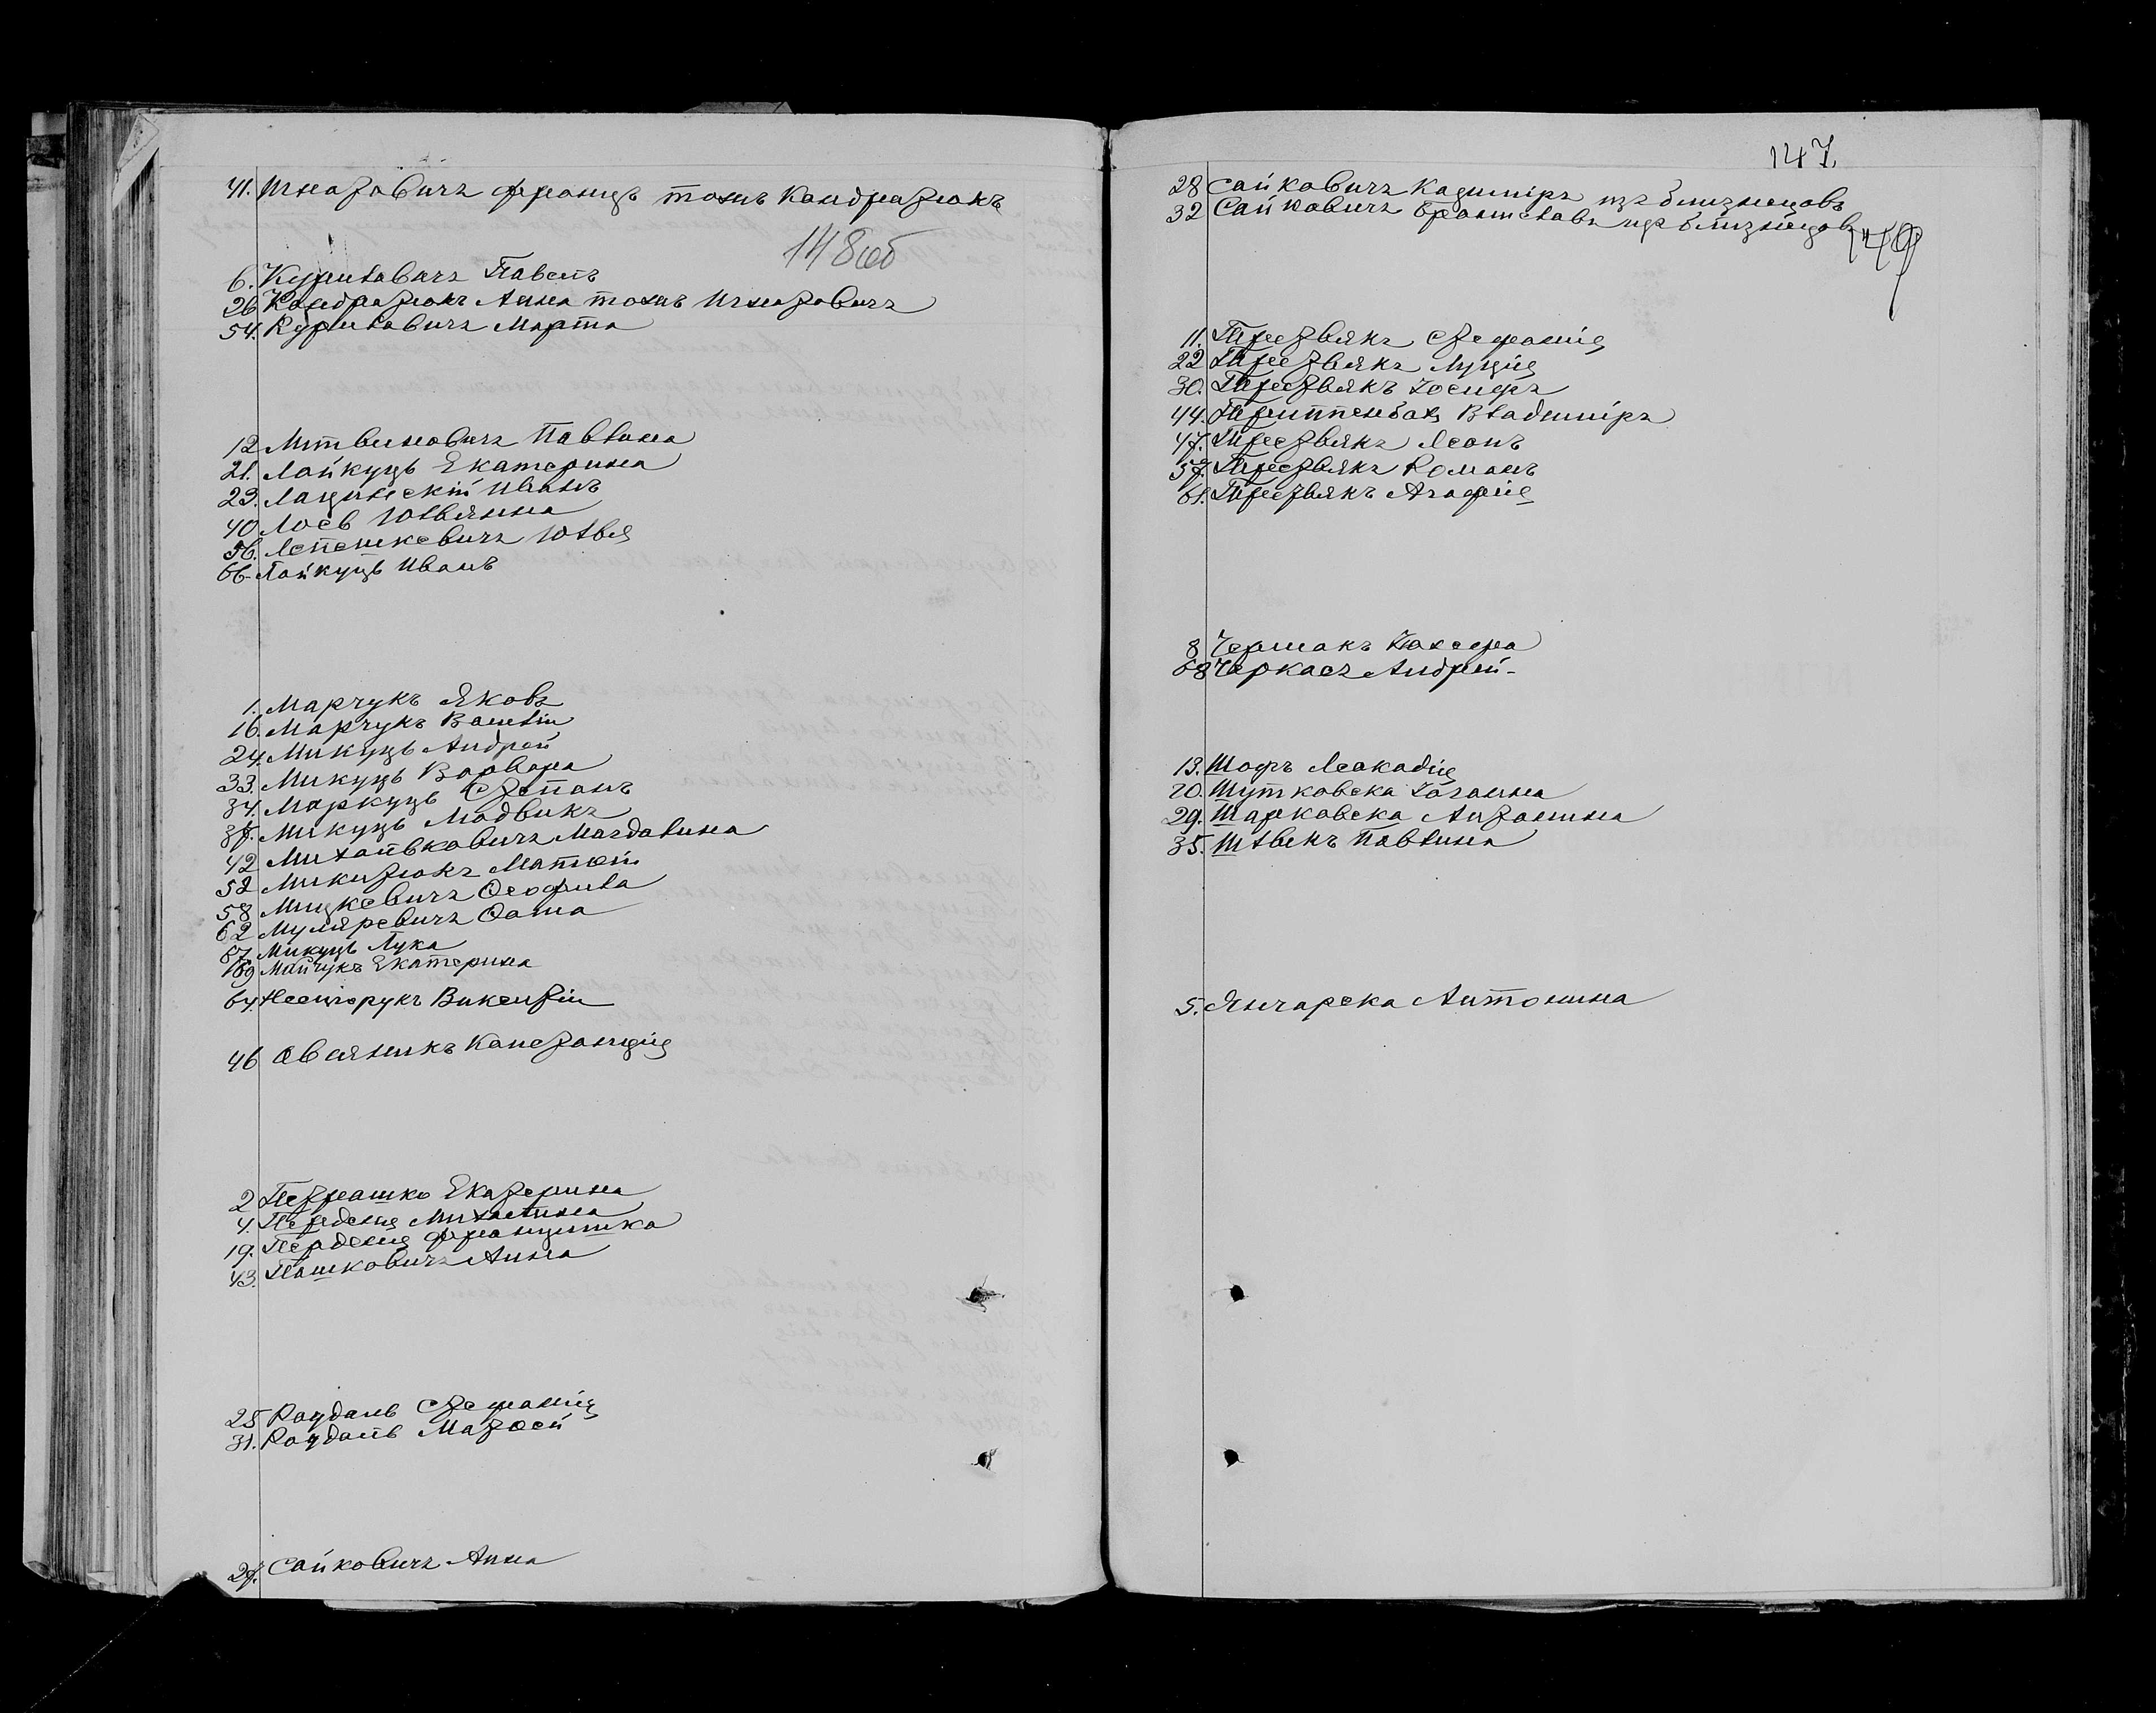 41. Игнатовичъ Францъ тожъ Кондратюкъ
148об
6. Куриловичъ Павелъ
26 Кондратюкъ Анна тожъ Игнатовичъ
54. Куриловичъ Марта
12 Литвиновичъ Павлина
21. Лайкуць Екатерина
23. Лащинскій Иванъ
40 Лось Юльянна
56. Лепешкевичъ Юлья
66. Лайкуць Иванъ
1. Марчукъ Яковъ
16. Марчукъ Василій
24. Микуць Андрей
33. Микуць Варвара
34. Маркуць Степанъ
38. Микуць Людвикъ
42 Михальковичъ Магдалина
52 Микитюкъ Матѳей
58 Мицкевичъ Ѳеофила
62 Муляревичъ Ѳома
67. Микуць Лука
69 Майчукъ Екатерина
64. Нестерукъ Викентій
46 Овсяникъ Констанція
2 Петрашко Екатерина
4. Переденя Михалина
19. Переденя Францишка
43. Пашковичъ Анна
25 Рондаль Стефанія
31. Рондаль Матѳей
27. Сайковичъ Анна
147.
28 Сайковичъ Казиміръ изъ близнецовъ
32 Сайковичъ Брониславъ изъ близнецовъ
149
11. Третьякъ Стефанія
22 Третьякъ Луція
30. Третьякъ Іосифъ
44. Владиміръ
47. Третьякъ Леонъ
57. Третьякъ Романъ
61. Третьякъ Агафія
8 Чермакъ
68 Черкасъ Андрей
13. Шофъ Леокадія
20. Шутковска Іоганна
29. Шарковска Антонина
35. Павлина
5. Янчарска Антонина